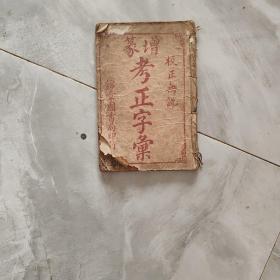 增篆
校正無訛
考正字彙